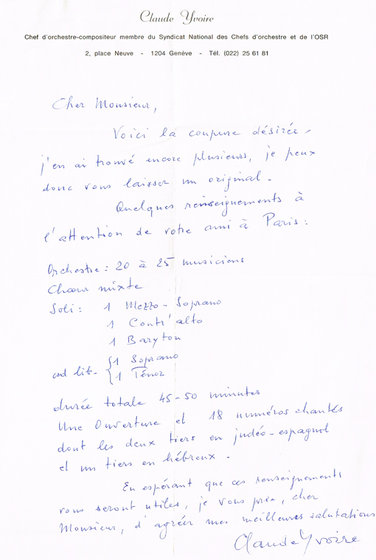 Claude Yvoire
Chef d'orchestre-compositeur membre du Syndicat National des Chefs d'orchestre et de l'OSR
2, place Neuve - 1204 Genève - Tél. (022) 25 61 81
Cher Monsieur,
Voici la coupure désirée -
j'en ai trouvé encore plusieurs, je peux
donc vous laisser un original.
Quelques renseignements à
l'attention de votre ami à Paris :
Orchestre : 20 à 25 musiciens
Chœur mixte
Soli : 1 Mezzo-Soprano
1 Contr'alto
1 Baryton
ad lib. { 1 Soprano
1 Ténor
durée totale 45-50 minutes
Une Ouverture et 18 numéros chantés
dont les deux tiers en judéo-espagnol
et un tiers en hébreux .
En espérant que ces renseignements
vous seront utiles, je vous prie, cher
Monsieur, d'agréer mes meilleures salutations
Claude Yvoire